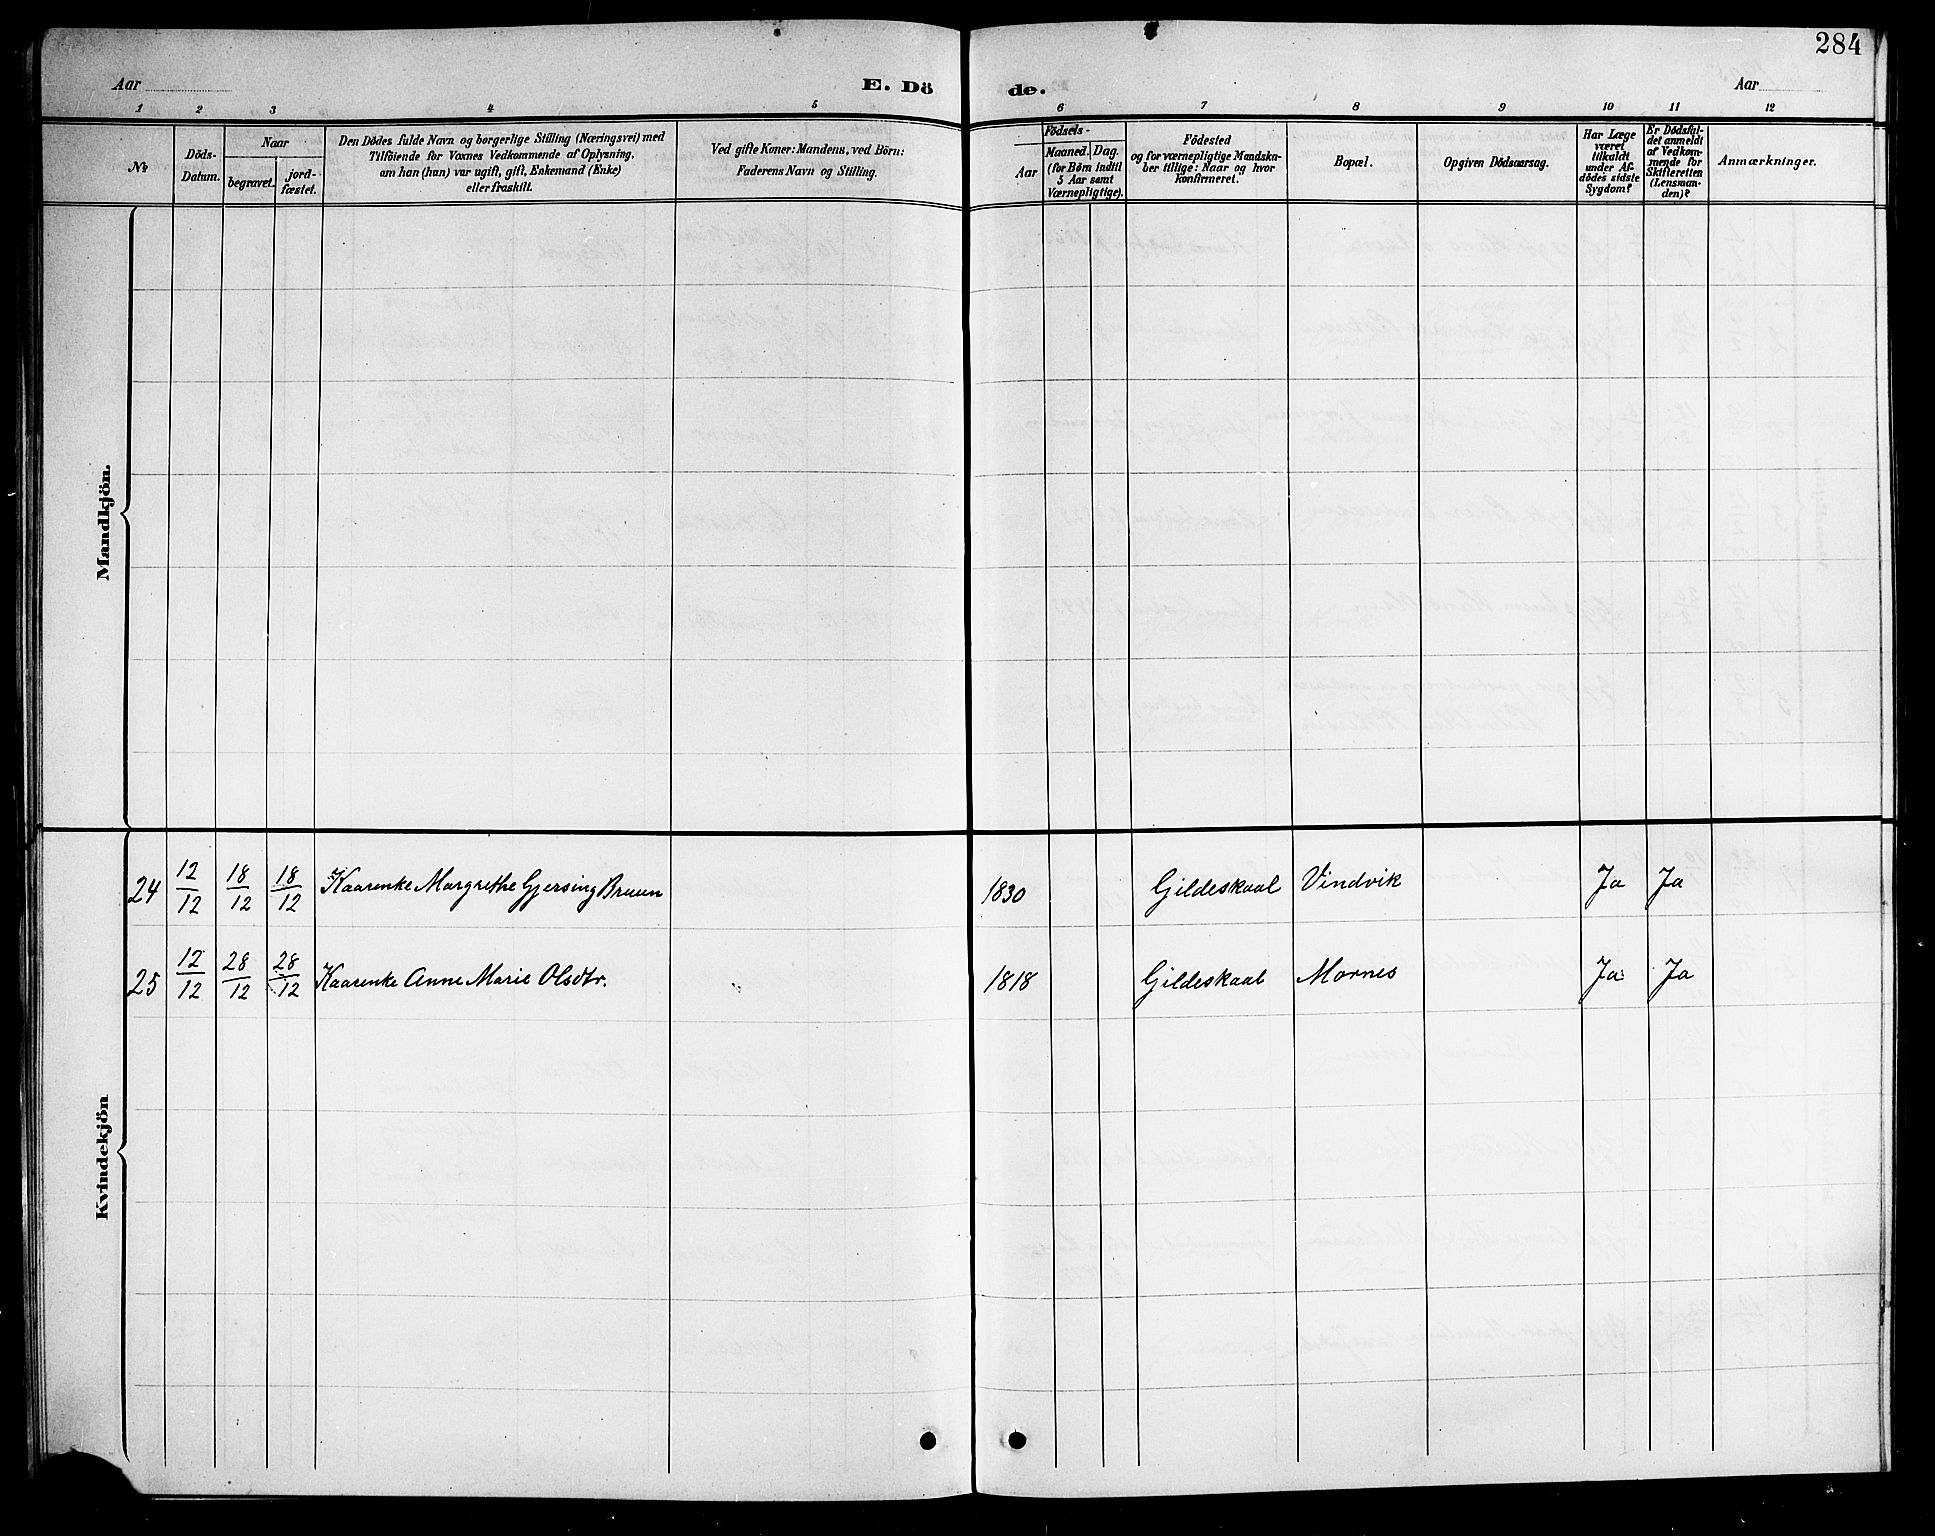 284
Aar
E. Dö
de.
Aar
1 2 3 4 5 6 7 8 9 10 11 12
No
Döds-
Datum.
Naar
begravet.
jord-
fæstet.
Den Dödes fulde Navn og borgerlige Stilling (Næringsvei) med
Tilföiende for Voxnes Vedkommende af Oplysning,
om han (hun) var ugift, gift, Enkemand (Enke)
eller fraskilt.
Ved gifte Koner: Mandens, ved Börn:
Faderens Navn og Stilling.
Födsels-
Aar
Maaned. Dag.
(for Börn indtil
5 Aar samt
Værnepligtige).
Födested
og for værnepligtige Mandska-
ber tillige: Naar og hvor
konfirmeret.
Bopæl.
Opgiven Dödsaarsag.
Har Læge
været
tilkaldt
under Af-
dödes sidste
Sygdom?
Er Dödsfal-
det anmeldt
af Vedkom-
mende for
Skifteretten
(Lensman-
den)?
Anmærkninger.
Mandkjön.
Kvindekjön
24 12/12 18/12 18/12 Kaarenke Margrethe Gjersing Bruun 1830 Gildeskaal Vindvik Ja Ja
25 12/12 28/12 28/12 Kaarenke Anne Marie Olsdtr. 1818 Gildeskaal Mornes Ja Ja